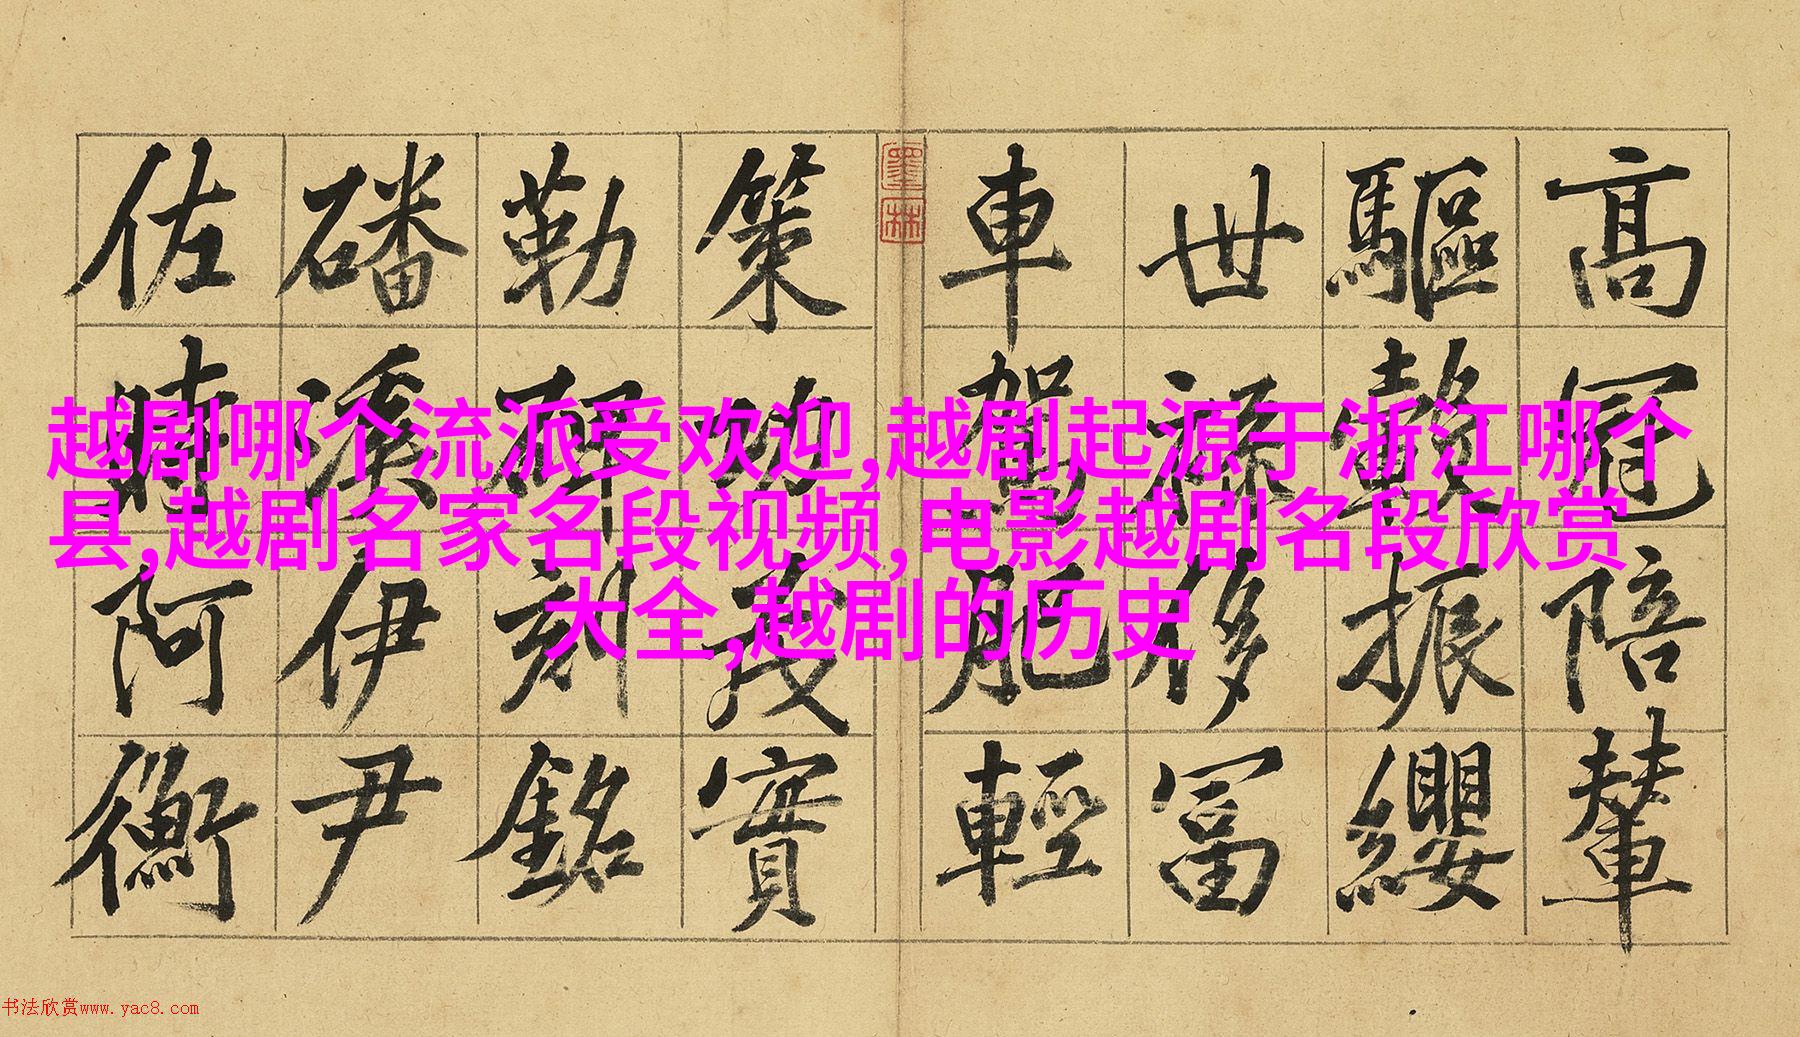 高冠陪輦
驅轂振纓
世祿侈富
車駕肥輕
墨林
策功茂實
勒碑刻銘
磻溪伊尹
佐時阿衡
越剧哪个流派受欢迎,越剧起源于浙江哪个
县,越剧名家名段视频,电影越剧名段欣赏
大全,越剧的历史
书法欣赏www.yac8.com